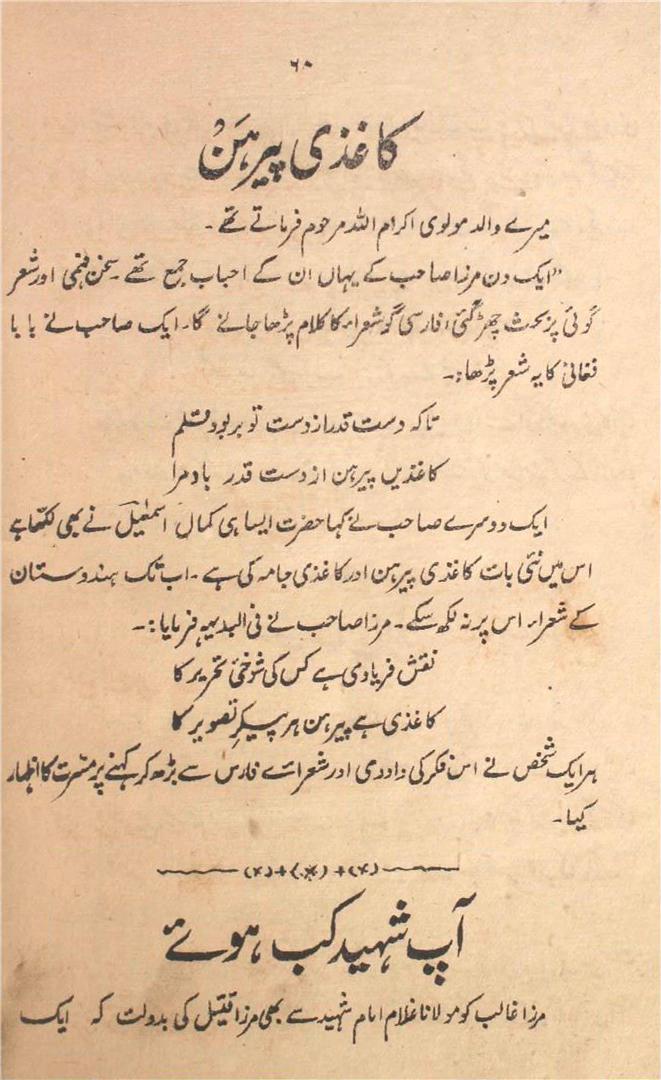 ۶۰
کاغذی پیرہن
میرے والد مولوی اکرام اللہ مرحوم فرماتے تھے ۔
”ایک دن مرزا صاحب کے یہاں ان کے احباب جمع تھے ۔ سخن فہمی اور شعر
گوئی پر بحث چھڑ گئی، فارسی گو شعراء کا کلام پڑھا جانے لگا۔ ایک صاحب نے بابا
فغانی کا یہ شعر پڑھا:۔
تا کہ دست قدر از دست تو بربود قلم
کاغذیں پیرہن از دست قدر باد مرا
ایک دوسرے صاحب نے کہا حضرت ایسا ہی کمال اسمٰعیل نے بھی لکھا ہے
اس میں نئی بات کاغذی پیرہن اور کاغذی جامہ کی ہے ۔ اب تک ہندوستان
کے شعراء اس پر نہ لکھ سکے ۔ مرزا صاحب نے فی البدیہہ فرمایا:۔
نقش فریادی ہے کس کی شوخیٔ تحریر کا
کاغذی ہے پیرہن ہر پیکرِ تصویر کا
ہر ایک شخص نے اس فکر کی داد دی اور شعرائے فارس سے بڑھ کر کہنے پر مسرت کا اظہار
کیا ۔
(×)+(×)+(×)
آپ شہید کب ہوئے
مرزا غالب کو مولانا غلام امام شہید سے بھی مرزا قتیل کی بدولت کہ ایک